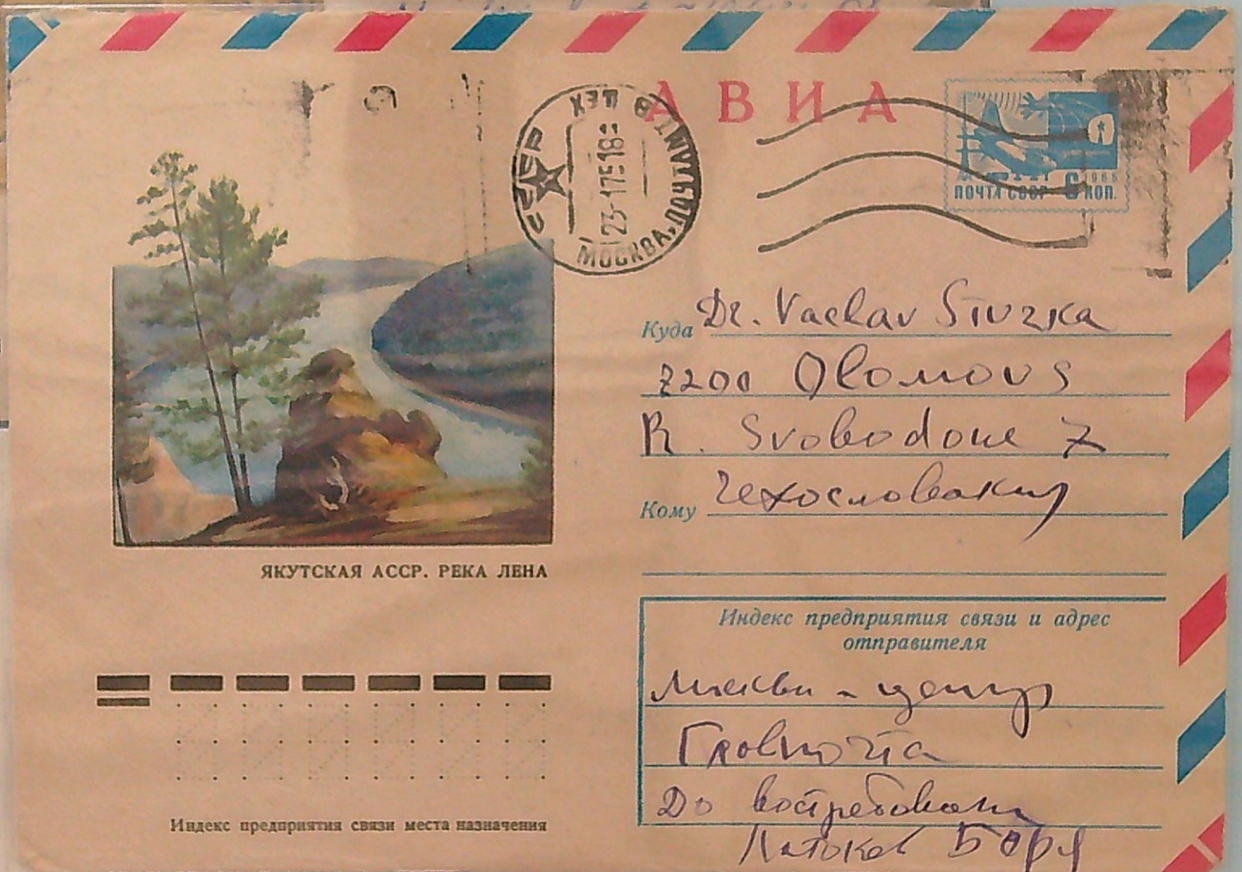 АВИА
МОСКВА, ПОЧТАМТ 8 ЦЕХ
СССР
23-1 75 18
ПОЧТА СССР 6 КОП.
1966
Куда Dr. Vaclav
Olomouc
R. Svobodove 7
Кому Чехословакия
ЯКУТСКАЯ АССР. РЕКА ЛЕНА
Индекс предприятия связи и адрес
отправителя
Москва - центр
Главпочта
До востребования
Боря
Индекс предприятия связи места назначения